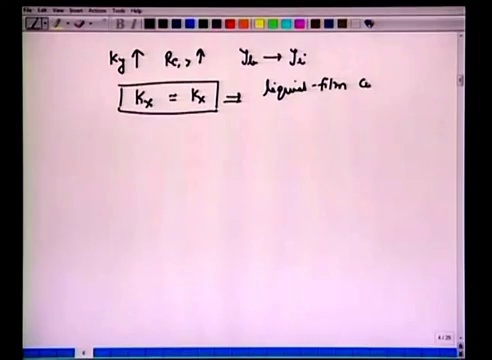 File Edit View Insert Actions Tools Help
ky ↑ Re, ↑ yb → yi
Kx = kx ⇒ liquid-film co
6
4 / 25